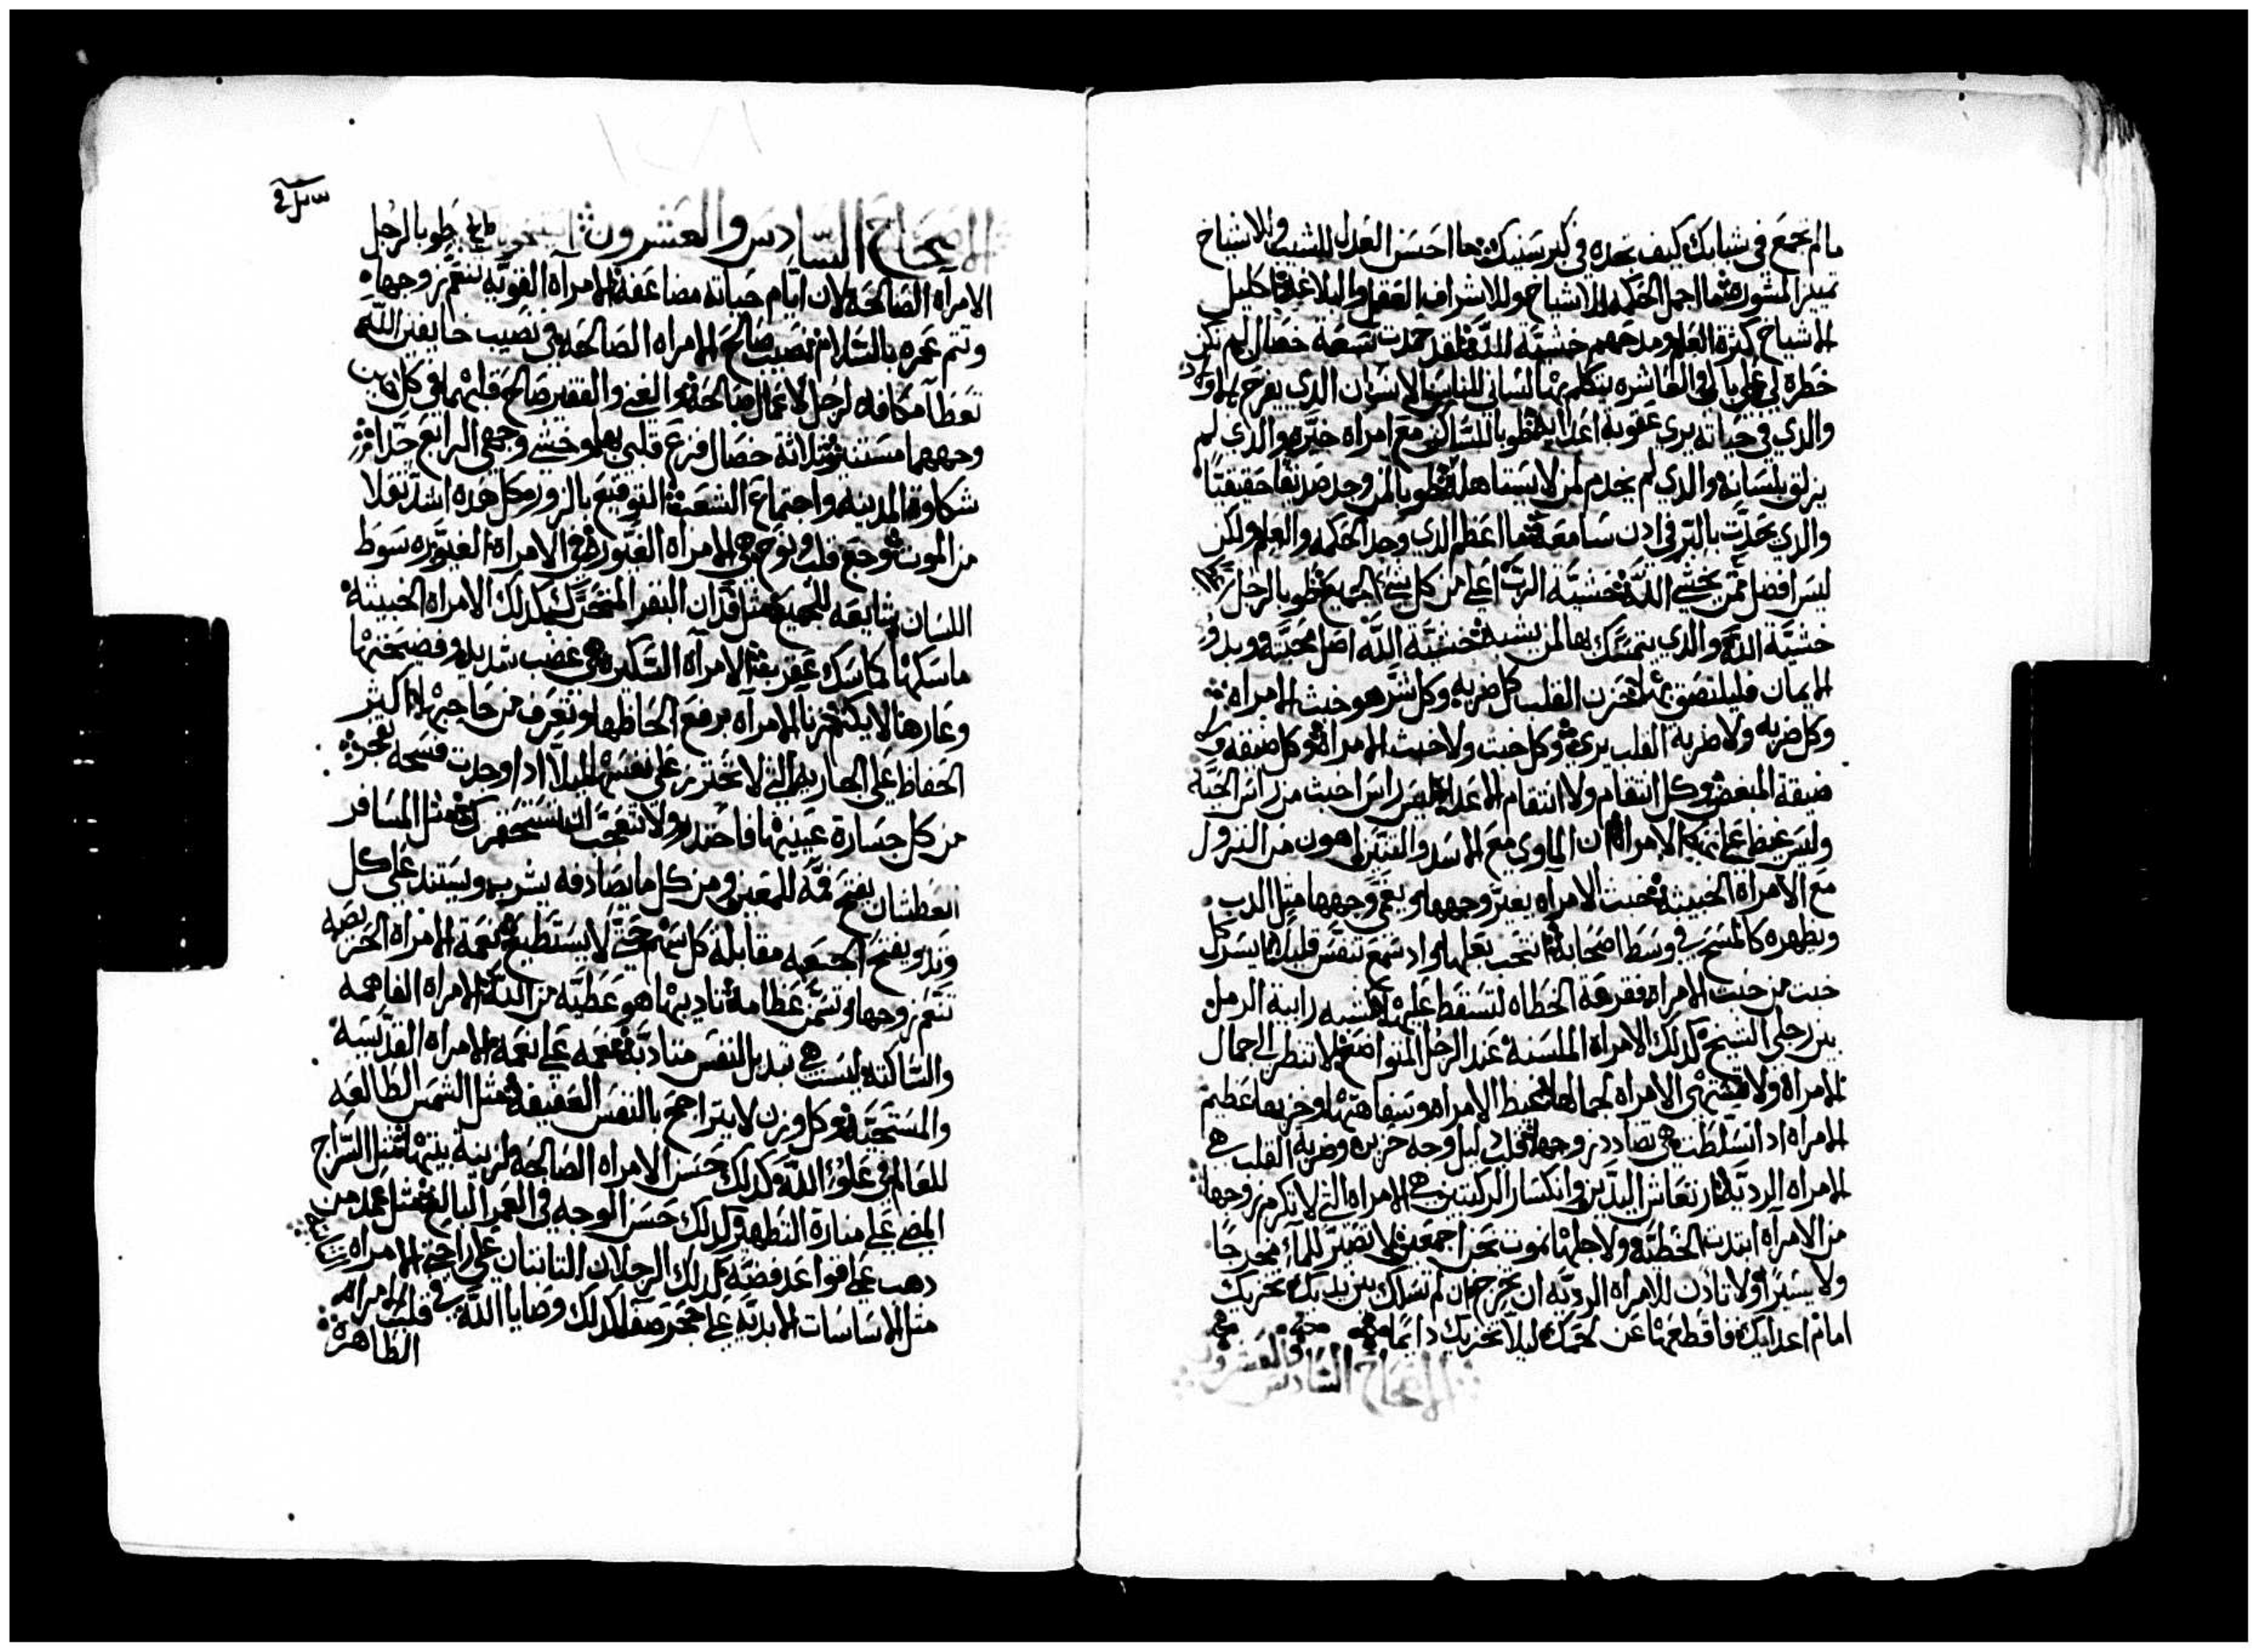 مالم تجمع في شبابك كيف تجده في كبر سنينك ما احسن العدل للشيب وللاشياخ
تمييز المشوره ما اجمل الحكمه للاشياخ وللاشراف العقل والبلاغه اكليل
الاشياخ كثرة العلم ومدحهم خشية الله لقد حمدت تسعة خصال لم تكن
خطره لي علي بال وفي العاشره يتكلم بها لساني للناس الانسان الذي يفرح باولاد
والذي في حياته يري عقوبة اعدايه طوبا للساكن مع امراه خيره والذي لم
يزلق بلسانه والذي لم يخدم لمن لا يستاهله طوبا لمن وجد صديقا حقيقيا
والذي يحدث بالبر في ادن سامعه ما اعظم الذي وجد الحكمه والعلم ولكن
ليس افضل ممن يخشي الله خشية الرب اعلي من كل شي الجميع طوبا لرجل
خشية الله والذي يتمسك بها لمن يشبه خشية الله اصل محبته وبدو
الايمان فليلتصق بها حزن القلب كل ضربه وكل شر هو خبث الامراه
وكل ضربه ولا ضربة القلب يري وكل خبث ولا خبث الامراه وكل ضيقه ولا
ضيقة المبغض وكل انتقام ولا انتقام الاعدا ليس راس اخبث من راس الحيه
وليس غيظ علي الامراه ان الماوي مع الاسد والتنين اهون من النزول
مع الامراه الخبيثه خبث الامراه يغير وجهها ويغمي وجهها مثل الدب
ويظهره كالمسح في وسط اصحابه انتحب بعلها واد سمع تنفس قليلا يسر كل
خبث من خبث الامراه فقرعة الخطاه لتسقط عليها شبه رابية الرمل
بين رجلي الشيخ كذلك الامراه الملسنه عند الرجل المتواضع لا تنظر الي جمال
الامراه ولا تشتهي الامراه لجمالها غيظ الامراه وسفاهتها وخزيها عظيم
الامراه ادا تسلطت هي تضادد زوجها قلب دليل ووجه حزين وضربة القلب هي
الامراه الرديه ارتعاش اليدين وانكسار الركبتين هي الامراه التي لا تكرم زوجها
من الامراه ابتدت الخطيه ولاجلها نموت نحن اجمعين لا تصير للماء مخرجا
ولا يسيرا ولا تادن للامراه الرديه ان تخرج ان لم تسلك بين يديك تخزيك
امام اعدايك فاقطعها عن لحمك ليلا تخزيك دايما
الاصحاح السادس والعشرون
الاصحاح السادس والعشرون طوبا لرجل
الامراه الصالحه لان ايام حياته مضاعفه الامراه القويه تنعم زوجها
وتتم عمره بالسلام نصيب صالح الامراه الصالحه في نصيب خايفين الله
تعطا مكافاه لرجل لاعمال صالحه الغني والفقير صالح قلبهما في كل حين
وجههما مستنير ثلاثة خصال فزع قلبي بها وخشي وجهي الرابع جدا
شكاوة المدينه واجتماع الشعب التوقيع بالزور كل هده اشد ثقلا
من الموت وجع قلب ونوح هي الامراه الغيوره في الامراه الغيوره سوط
اللسان شايعه للجميع مثل فدان البقر المتحرك كدلك الامراه الخبيثه
ماسكها كماسك عقرب الامراه السكيره هي غضب شديد وفضيحتها
وعارها لا يكتم زنا الامراه برفع الحاظها وتعرف من حاجبها اكثر
الحفاظ علي الجاريه التي لا تحترز علي نفسها ليلا ادا وجدت فسحه تفجر
من كل جسارة عينيها فاحتدر ولا تتعجب ان تستحقرك مثل المسافر
العطشان يفتح فمه للمعين ومن كل ما يصادفه يشرب ويستند علي كل
وتد ويفتح الجعبه مقابلة كل سهم حتي لا يستطيع نعمة الامراه الحريصه
تنعم زوجها وتسمن عظامه تاديبها هو عطيه من الله الامراه الفاهمه
والساكته ليست هي تبديل النفس متادبه نعمه علي نعمه الامراه القديسه
والمستحيه وكل وزن لا يتراجح بالنفس العفيفه مثل الشمس الطالعه
للعالم في علو الله كدلك حسن الامراه الصالحه لزينة بيتها مثل السراج
المضي علي منارة التطهير كدلك حسن الوجه في العمر البالغ مثل عمد من
دهب علي قواعد فضه كدلك الرجلان الثابتان علي راحتي الامراه ثابته
مثل الاساسات الابديه علي صخر صفا كدلك وصايا الله في قلب الامراه
الطاهره